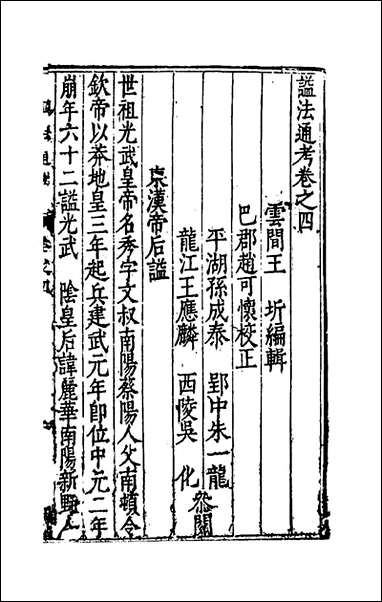 諡法通考卷之四
雲間王　圻編輯
巴郡趙可懷校正
平湖孫成泰　郢中朱一龍
龍江王應麟　西陵吳　化　參閱
東漢帝后諡
世祖光武皇帝名秀字文叔南陽蔡陽人父南頓令
欽帝以莽地皇三年起兵建武元年即位中元二年
崩年六十二諡光武　陰皇后諱麗華南陽新野人